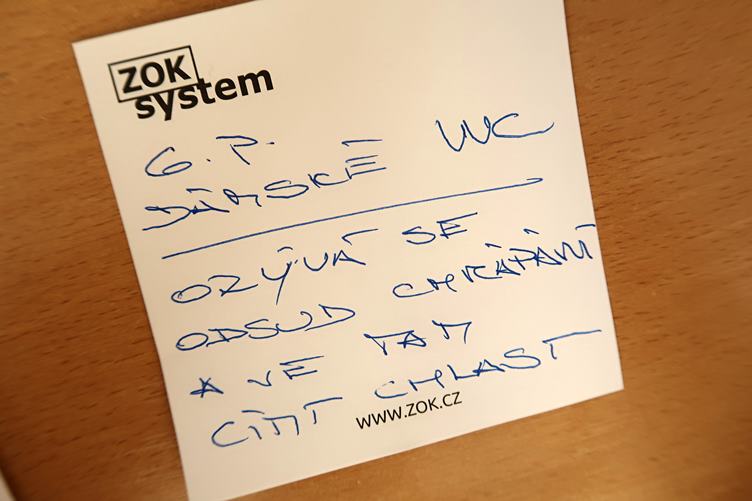 ZOK
system
6. P.
DÁMSKÉ WC
OZÝVÁ SE
ODSUD CHRÁPÁNÍ
A JE TAM
CÍTIT CHLAST
WWW.ZOK.CZ